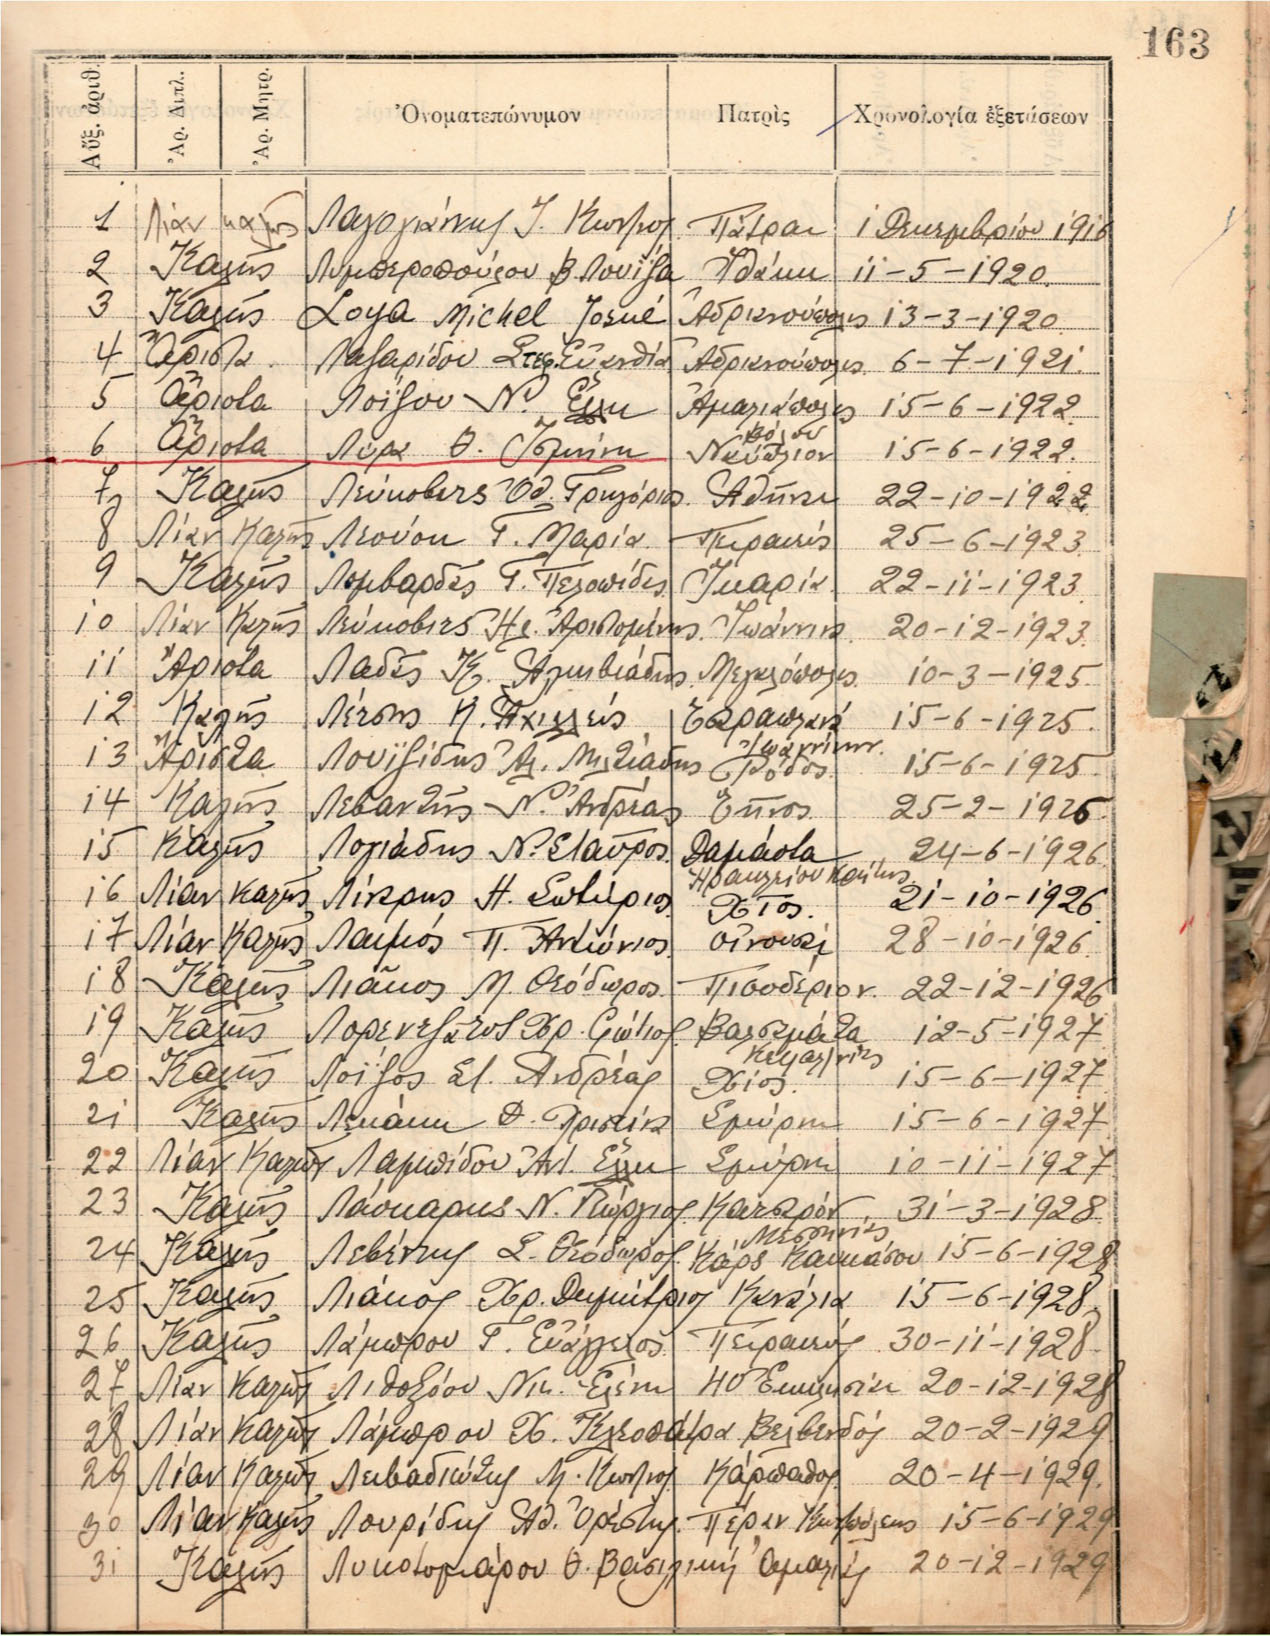 163
Αὔξ. ἀριθ. Ἀρ. Διπλ. Ἀρ. Μητρ. Ὀνοματεπώνυμον Πατρὶς Χρονολογία ἐξετάσεων
1 Λίαν καλῶς Λαγογιάννης Ι. Κων/νος Πάτραι 1 Δεκεμβρίου 1916
2 Καλῶς Λυμπεροπούλου Β. Λουΐζα Ἰθάκη 11-5-1920
3 Καλῶς Loya Michel Josué Ἀδριανούπολις 13-3-1920
4 Ἄριστα Λαζαρίδου Στεφ. Εὐανθία Ἀδριανούπολις 6-7-1921.
5 Ἄριστα Λοΐζου Ν. Ἕλλη Ἀμαλιάπολις 15-6-1922
Βόλου
6 Ἄριστα Λύρα Θ. Ἰσμήνη Ναύπλιον 15-6-1922.
7 Καλῶς Λεύκοβιτς Ὀδ. Γρηγόριος Ἀθῆναι 22-10-1922
8 Λίαν Καλῶς Λεούση Γ. Μαρία Πειραιεύς 25-6-1923
9 Καλῶς Λομβαρδᾶς Γ. Πελοπίδας Ἰκαρία 22-11-1923.
10 Λίαν Καλῶς Λεύκοβιτς Ἠλ. Ἀριστομένης Ἰωάννινα 20-12-1923.
11 Ἄριστα Λαδᾶς Κ. Ἀλκιβιάδης Μεγαλόπολις 10-3-1925.
12 Καλῶς Λέτσης Κ. Ἀχιλλεύς 15-6-1925.
Ἰωαννίνων
13 Ἄριστα Λουϊζίδης Ἀλ. Μιλτιάδης Ρόδος 15-6-1925.
14 Καλῶς Λεβαντῆς Ν. Ἀνδρέας Τῆνος 25-2-1926.
15 Καλῶς Λογιάδης Ν. Σταῦρος Δαμάστα 24-6-1926
Ἡρακλείου Κρήτης
16 Λίαν Καλῶς Λίναρης Η. Σωτήριος Χῖος. 21-10-1926
17 Λίαν Καλῶς Λαιμός Π. Ἀντώνιος Οἰνοῦσαι 28-10-1926.
18 Καλῶς Λιᾶκος Μ. Θεόδωρος Πισοδέριον. 22-12-1926
19 Καλῶς Λορεντζάτος Χρ. Φώτιος Βαλσαμάτα 12-5-1927
Κεφαλληνίας
20 Καλῶς Λοΐζος Στ. Ἀνδρέας Χίος. 15-6-1927
21 Καλῶς Λεκάκη Θ. Χριστίνα Σμύρνη 15-6-1927
22 Λίαν Καλῶς Λαμπίδου Ἀντ. Ἕλλη Σμύρνη 10-11-1927
23 Καλῶς Λάσκαρης Ν. Γεώργιος 31-3-1928
Μεσσηνίας
24 Καλῶς Λεβέντης Σ. Θεόδωρος Κάρς Καυκάσου 15-6-1928
25 Καλῶς Λιάκος Χρ. Δημήτριος Κανάλια 15-6-1928.
26 Καλῶς Λάμπρου Γ. Εὐάγγελος Πειραιεύς 30-11-1928
27 Λίαν Καλῶς Λιθοξόου Νικ. Ἑλένη 40 Ἐκκλησίαι 20-12-1928
28 Λίαν Καλῶς Λάμπρου Χ. Κλεοπάτρα Βελβενδός 20-2-1929
29 Λίαν Καλῶς Λειβαδιώτης Μ. Κων/νος Κάρπαθος 20-4-1929.
30 Λίαν Καλῶς Λουρίδης Ἀθ. Ὀρέστης Πέραν Κων/πόλεως 15-6-1929
31 Καλῶς Θ. Βασιλική 20-12-1929